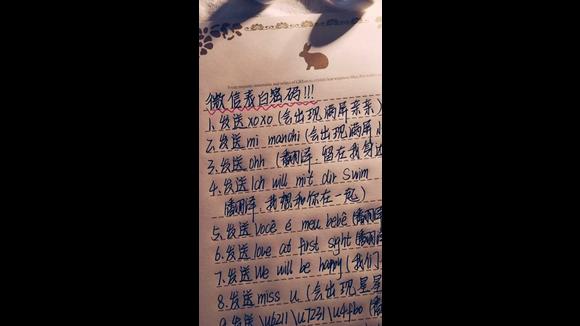 微信表白密码!!!
1、发送xoxo(会出现满屏亲亲)
2、发送mi manchi(会出现满屏
3、发送ohh (翻译:留在我身边
4、发送Ich will mit dir swim
翻译:我想和你在一起)
5、发送Você é meu bebê(翻译
6、发送love at first sight(翻译
7、发送We will be happy(我们
8、发送miss u(会出现星星
9、发送\u6211\u7231\u4f60(翻